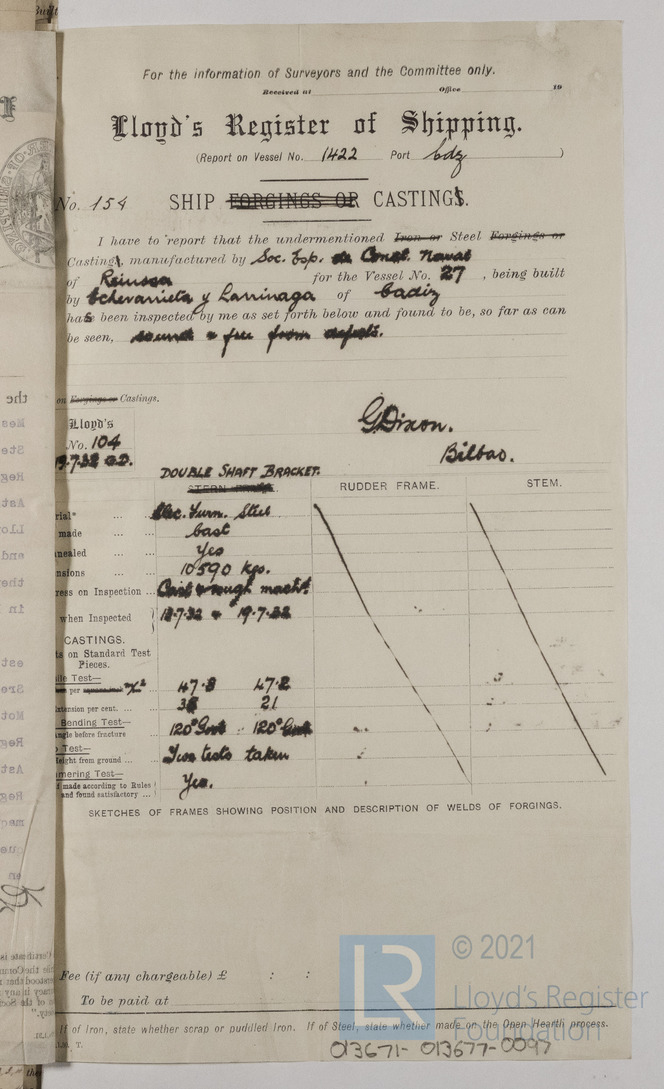 For the information of Surveyors and the Committee only.
Received at Office 19
Lloyd's Register of Shipping.
(Report on Vessel No. 1422 Port Cdz )
No. 154 SHIP FORGINGS OR CASTINGS.
I have to report that the undermentioned Iron or Steel Forgings or
Casting, manufactured by Soc. Esp. de Const. Naval
of Reinosa for the Vessel No. 27, being built
by Echevarrieta y Larrinaga of Cadiz
has been inspected by me as set forth below and found to be, so far as can
be seen, sound & free from defects.
on Forgings or Castings.
G. Dixon.
Bilbao.
Lloyd's
No. 104
19.7.32 G.D.
DOUBLE SHAFT BRACKET.
STERN FRAME. RUDDER FRAME. STEM.
rial* ... Elec. Furn. Steel
made ... Cast
nealed ... Yes
nsions ... 10590 kgs.
ress on Inspection ... Cast & rough macht.
when Inspected 18.7.32 & 19.7.32
CASTINGS.
ts on Standard Test
Pieces.
ile Test—
per square inch 47.8 47.2
Extension per cent. ... 21
Bending Test—
ngle before fracture 120° Good 120° Good
p Test—
Height from ground ... Two tests taken
mmering Test—
d made according to Rules
and found satisfactory ... Yes.
SKETCHES OF FRAMES SHOWING POSITION AND DESCRIPTION OF WELDS OF FORGINGS.
Fee (if any chargeable) £ : :
To be paid at
If of Iron, state whether scrap or puddled Iron. If of Steel, state whether made on the Open Hearth process.
LR © 2021
Lloyd's Register
Foundation
013671-013677-0097